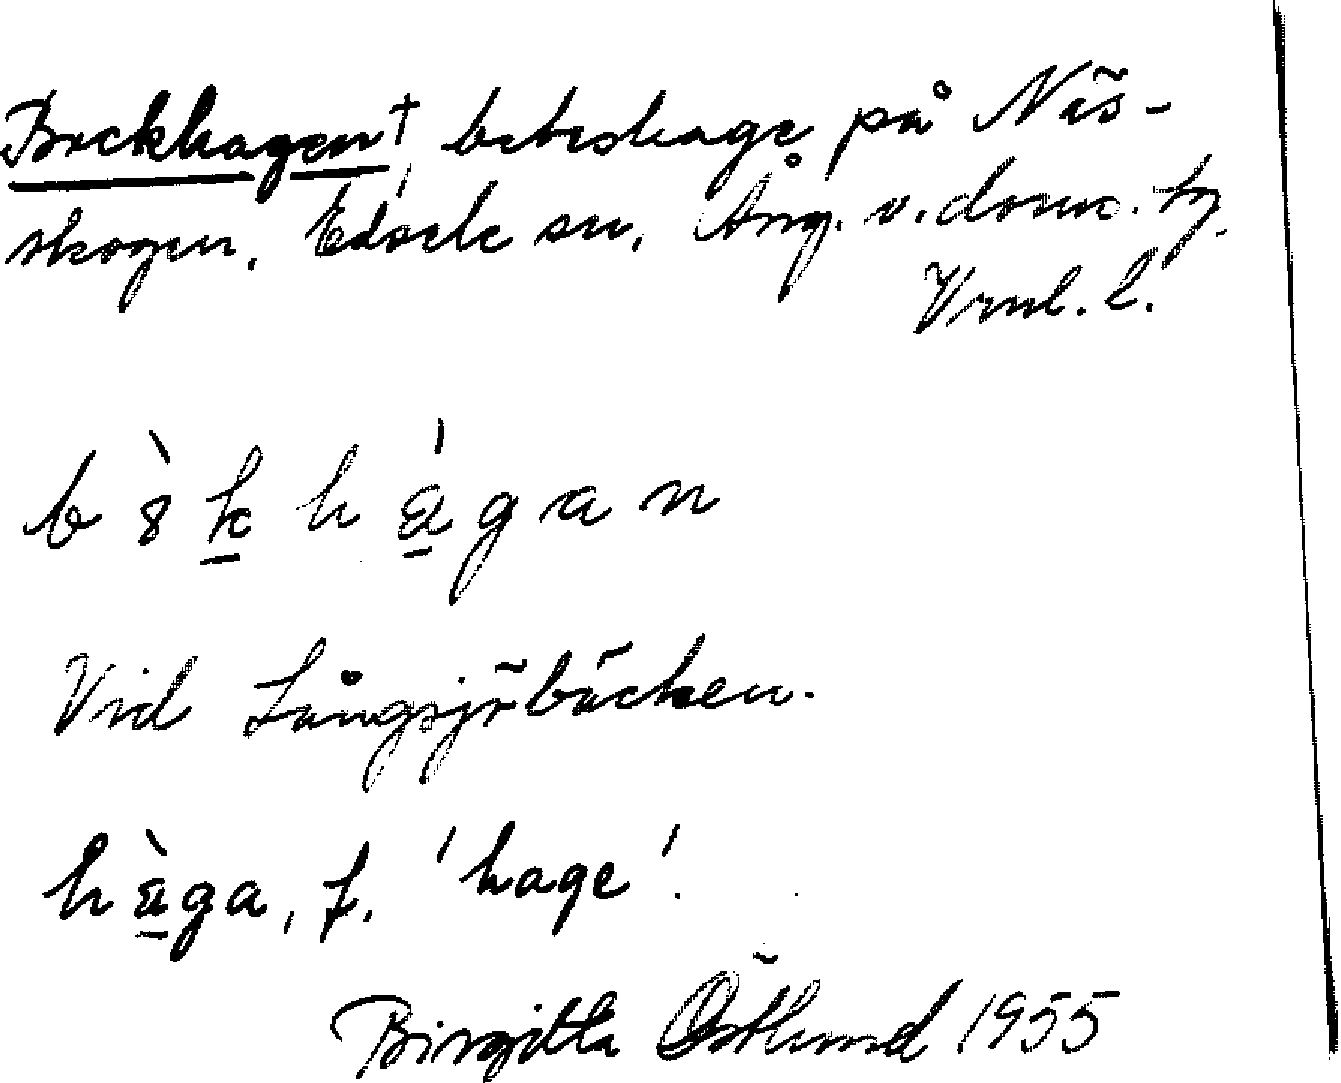 Bockhagen†, beteshage på Näs-
skogen. Edsele sn. Ång. v. doms. tg.
Vrml. l.
b ò k h á g a n
Vid Långsjöbäcken.
hàga, f. 'hage'.
Birgitta Östlund 1955